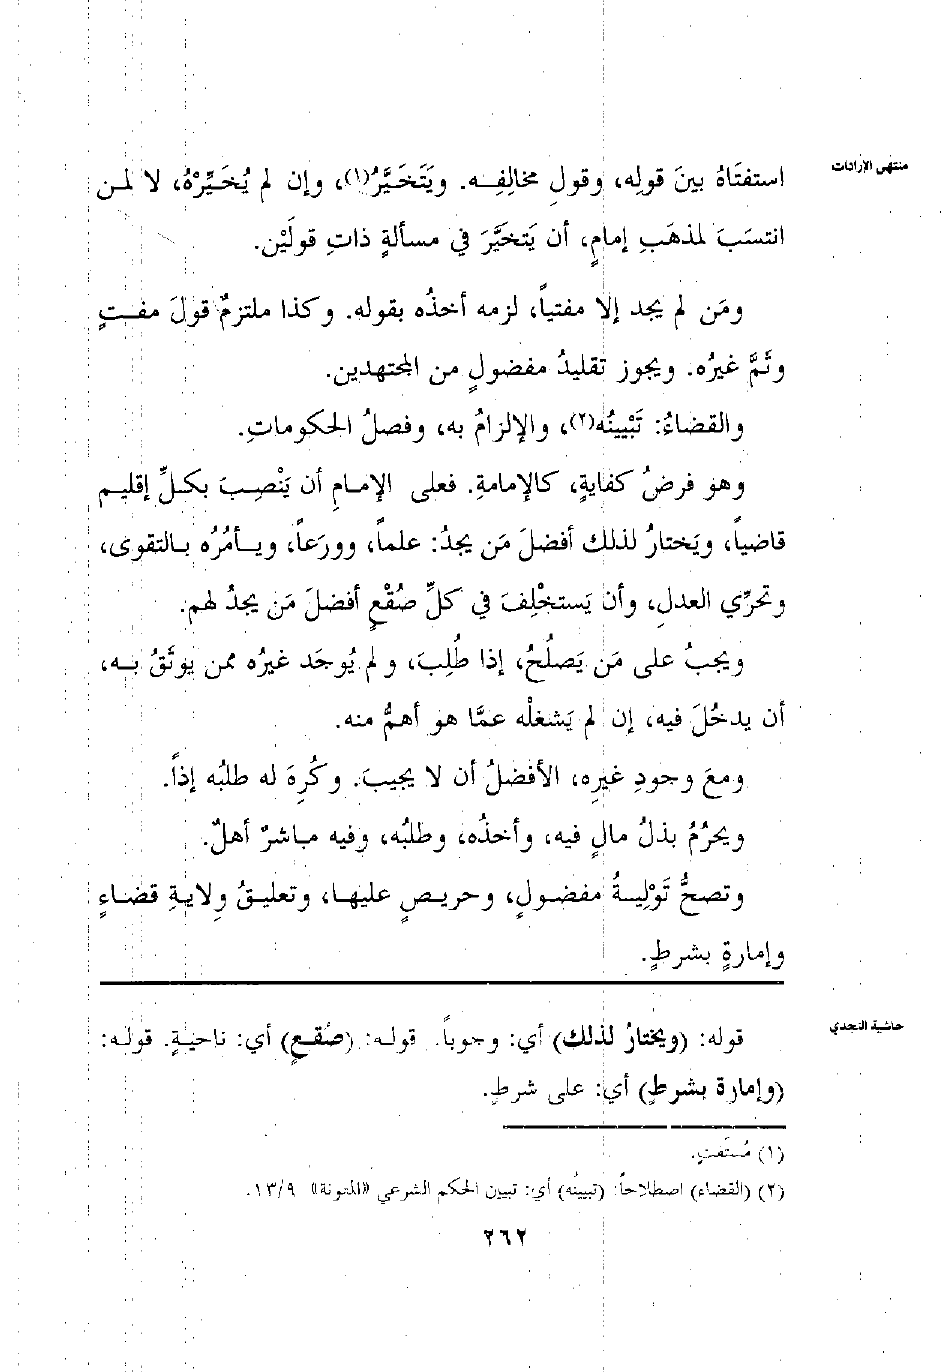 منتهى الإرادات
استفتَاهُ بينَ قولِه، وقولِ مخالِفِه. ويَتَخَيَّرُ(١)، وإن لم يُخَيِّرْهُ، لا لمن
انتسَبَ لمذهَبِ إمامٍ، أن يَتخيَّرَ في مسألةٍ ذاتِ قولَيْن.
ومَن لم يجد إلا مفتياً، لزمه أخذُه بقوله. وكذا ملتزمٌ قولَ مفتٍ
وثَمَّ غيرُه. ويجوز تقليدُ مفضولٍ من المجتهدين.
والقضاءُ: تَبْيينُه(٢)، والإلزامُ به، وفصلُ الحكوماتِ.
وهو فرضُ كفايةٍ، كالإمامةِ. فعلى الإمامِ أن يَنْصِبَ بكلِّ إقليم
قاضياً، ويَختارُ لذلك أفضلَ مَن يجدُ: علماً، وورَعاً، ويأمُرُه بالتقوى،
وتحرِّي العدلِ، وأن يَستخْلِفَ في كلِّ صُقْعٍ أفضلَ مَن يجدُ لهم.
ويجبُ على مَن يَصلُحُ، إذا طُلِبَ، ولم يُوجَد غيرُه ممن يوثَقُ به،
أن يدخُلَ فيه، إن لم يَشغلْه عمَّا هو أهمُّ منه.
ومعَ وجودِ غيرِه، الأفضلُ أن لا يجيبَ. وكُرِهَ له طلبُه إذاً.
ويحرُمُ بذلُ مالٍ فيه، وأخذُه، وطلبُه، وفيه مباشرٌ أهلٌ.
وتصحُّ تَوْلِيةُ مفضولٍ، وحريصٍ عليها، وتعليقُ وِلايةِ قضاءٍ
وإمارةٍ بشرطٍ.
حاشية النجدي
قوله: (ويختارُ لذلك) أي: وجوباً. قوله: (صُقعٍ) أي: ناحيةٍ. قوله:
(وإمارة بشرطٍ) أي: على شرطٍ.
(١) مُستَفتٍ.
(٢) (القضاء) اصطلاحاً: (تبيينُه) أي: تبيين الحكم الشرعي «المعونة» ١٣/٩.
٢٦٢